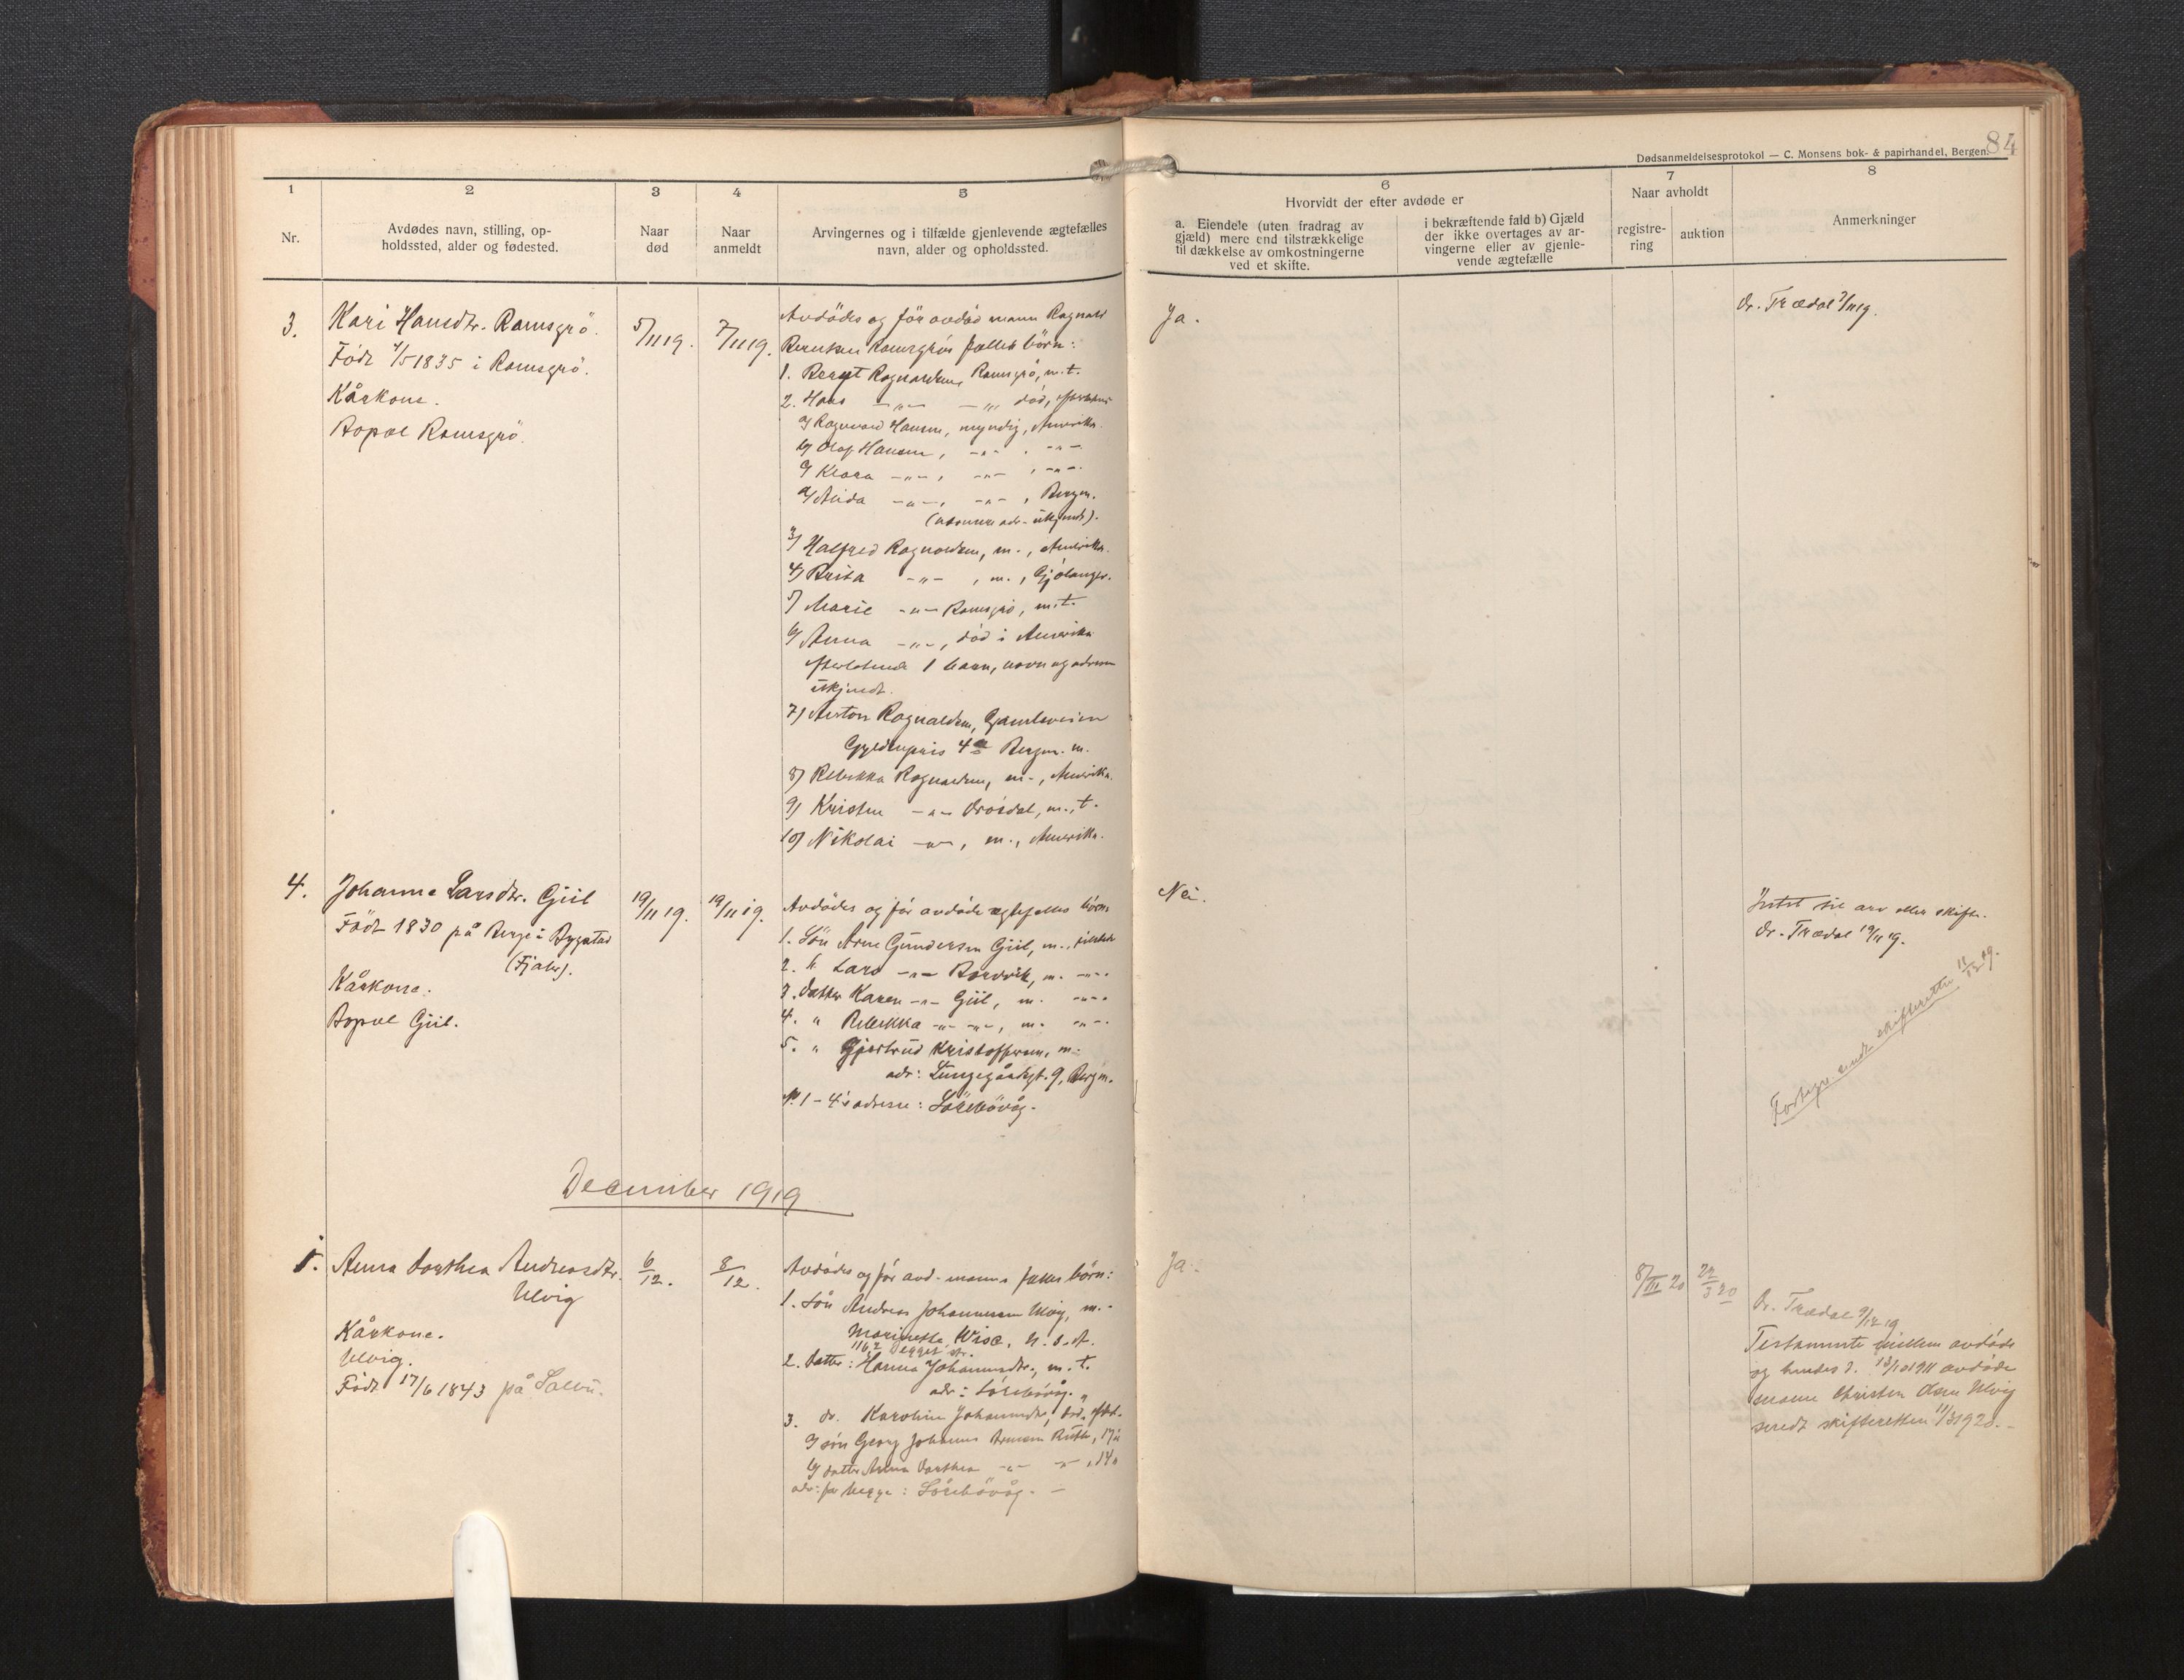 84
Dødsanmeldelsesprotokol — C. Monsens bok- & papirhandel, Bergen.
1
2
3
4
5
6
7
8
Nr.
Avdødes navn, stilling, op-
holdssted, alder og fødested.
Naar
død
Naar
anmeldt
Arvingernes og i tilfælde gjenlevende ægtefælles
navn, alder og opholdssted.
Hvorvidt der efter avdøde er
a. Eiendele (uten fradrag av
gjæld) mere end tilstrækkelige
til dækkelse av omkostningerne
ved et skifte.
i bekræftende fald b) Gjæld
der ikke overtages av ar-
vingerne eller av gjenle-
vende ægtefælle
Naar avholdt
registre-
ring
auktion
Anmerkninger
3.
Kari Hansdtr. Ramsgrö.
Födt 4/5 1835 i Ramsgrö.
Kårkone.
Bopæl Ramsgrö.
5/11 19.
7/11 19.
Avdödes og för avdöd mann Ragnald
Berntsen Ramsgrös fælles börn:
1. Bernt Ragnaldsen Ramsgrö, m. t.
2. Hans -"- -"- död, efterladt
a/ Ragnvald Hansen, myndig, Amerika
b/ Olaf Hansen, -"- , -"-
c/ Klara -"-, -"- , -"-
d/ Alida -"-, -"- , Bergen.
(nærmere adr. ukjendt).
3/ Halfred Ragnaldsen, m., Amerika.
4/ Brita -"- , m., Gjölanger.
5/ Marie -"- Ramsgrö, m. t.
6/ Anna -"-, död i Amerika
efterlatende 1 barn, navn og adresse
ukjendt.
7) Anton Ragnaldsen, Gamleveien
Gyldenpris 4 a Bergen. m.
8) Rebekka Ragnaldsen, m., Amerika.
9) Kristen -"- Drösdal, m., t.
10) Nikolai -"-, m., Amerika.
Ja.
Dr. Trædal 7/11 19.
4.
Johanne Larsdtr. Giil
Födt 1830 på Berge i Bygstad
(Fjaler).
Kårkone.
Bopæl Giil.
19/11 19.
19/11 19.
Avdödes og för avdöde ægtefælles börn
1. Sön Arne Gundersen Giil, m.,
2. " Lars -"- m. -"-
3. Datter Karen -"- Giil, m. -"-
4. " Rebekka -"- -"-, m. -"-
5. " Gjertrud Kristoffersen, m.
adr: Lungegårdsgt. 9, Bergen.
No. 1 - 4's adresse: Sörebövåg.
Nei.
Intet til arv eller skifte.
Dr. Trædal 19/11 19.
Fortegn. sendt skifteretten 11/12 19.
December 1919
1.
Anna Dorthea Andreasdtr.
Ulvig
Kårkone.
Ulvig.
Födt 17/6 1843 på
6/12.
8/12.
Avdödes og för avd. manns fælles börn:
1. Sön Andreas Johannesen Ulvig, m.
Marinette, Wisc. U. S. A.
1162 str.
2. Datter: Hanna Johannesdtr., m. t.
adr: Sörebövåg.
3. do. Karoline Johannesdtr, död, efterl.
a/ sön Georg Johannes Ruth, 17 år
b/ datter Anna Dorthea -"- -"-, 14 "
adr: for begge: Sörebövåg. -
Ja.
8/III 20
22/3 20
Dr. Trædal 9/12 19
Testamente mellem avdöde
og hendes d. 13/10 1911 avdöde
mann Christen Olsen Ulvig
sendt skifteretten 11/3 1920.-